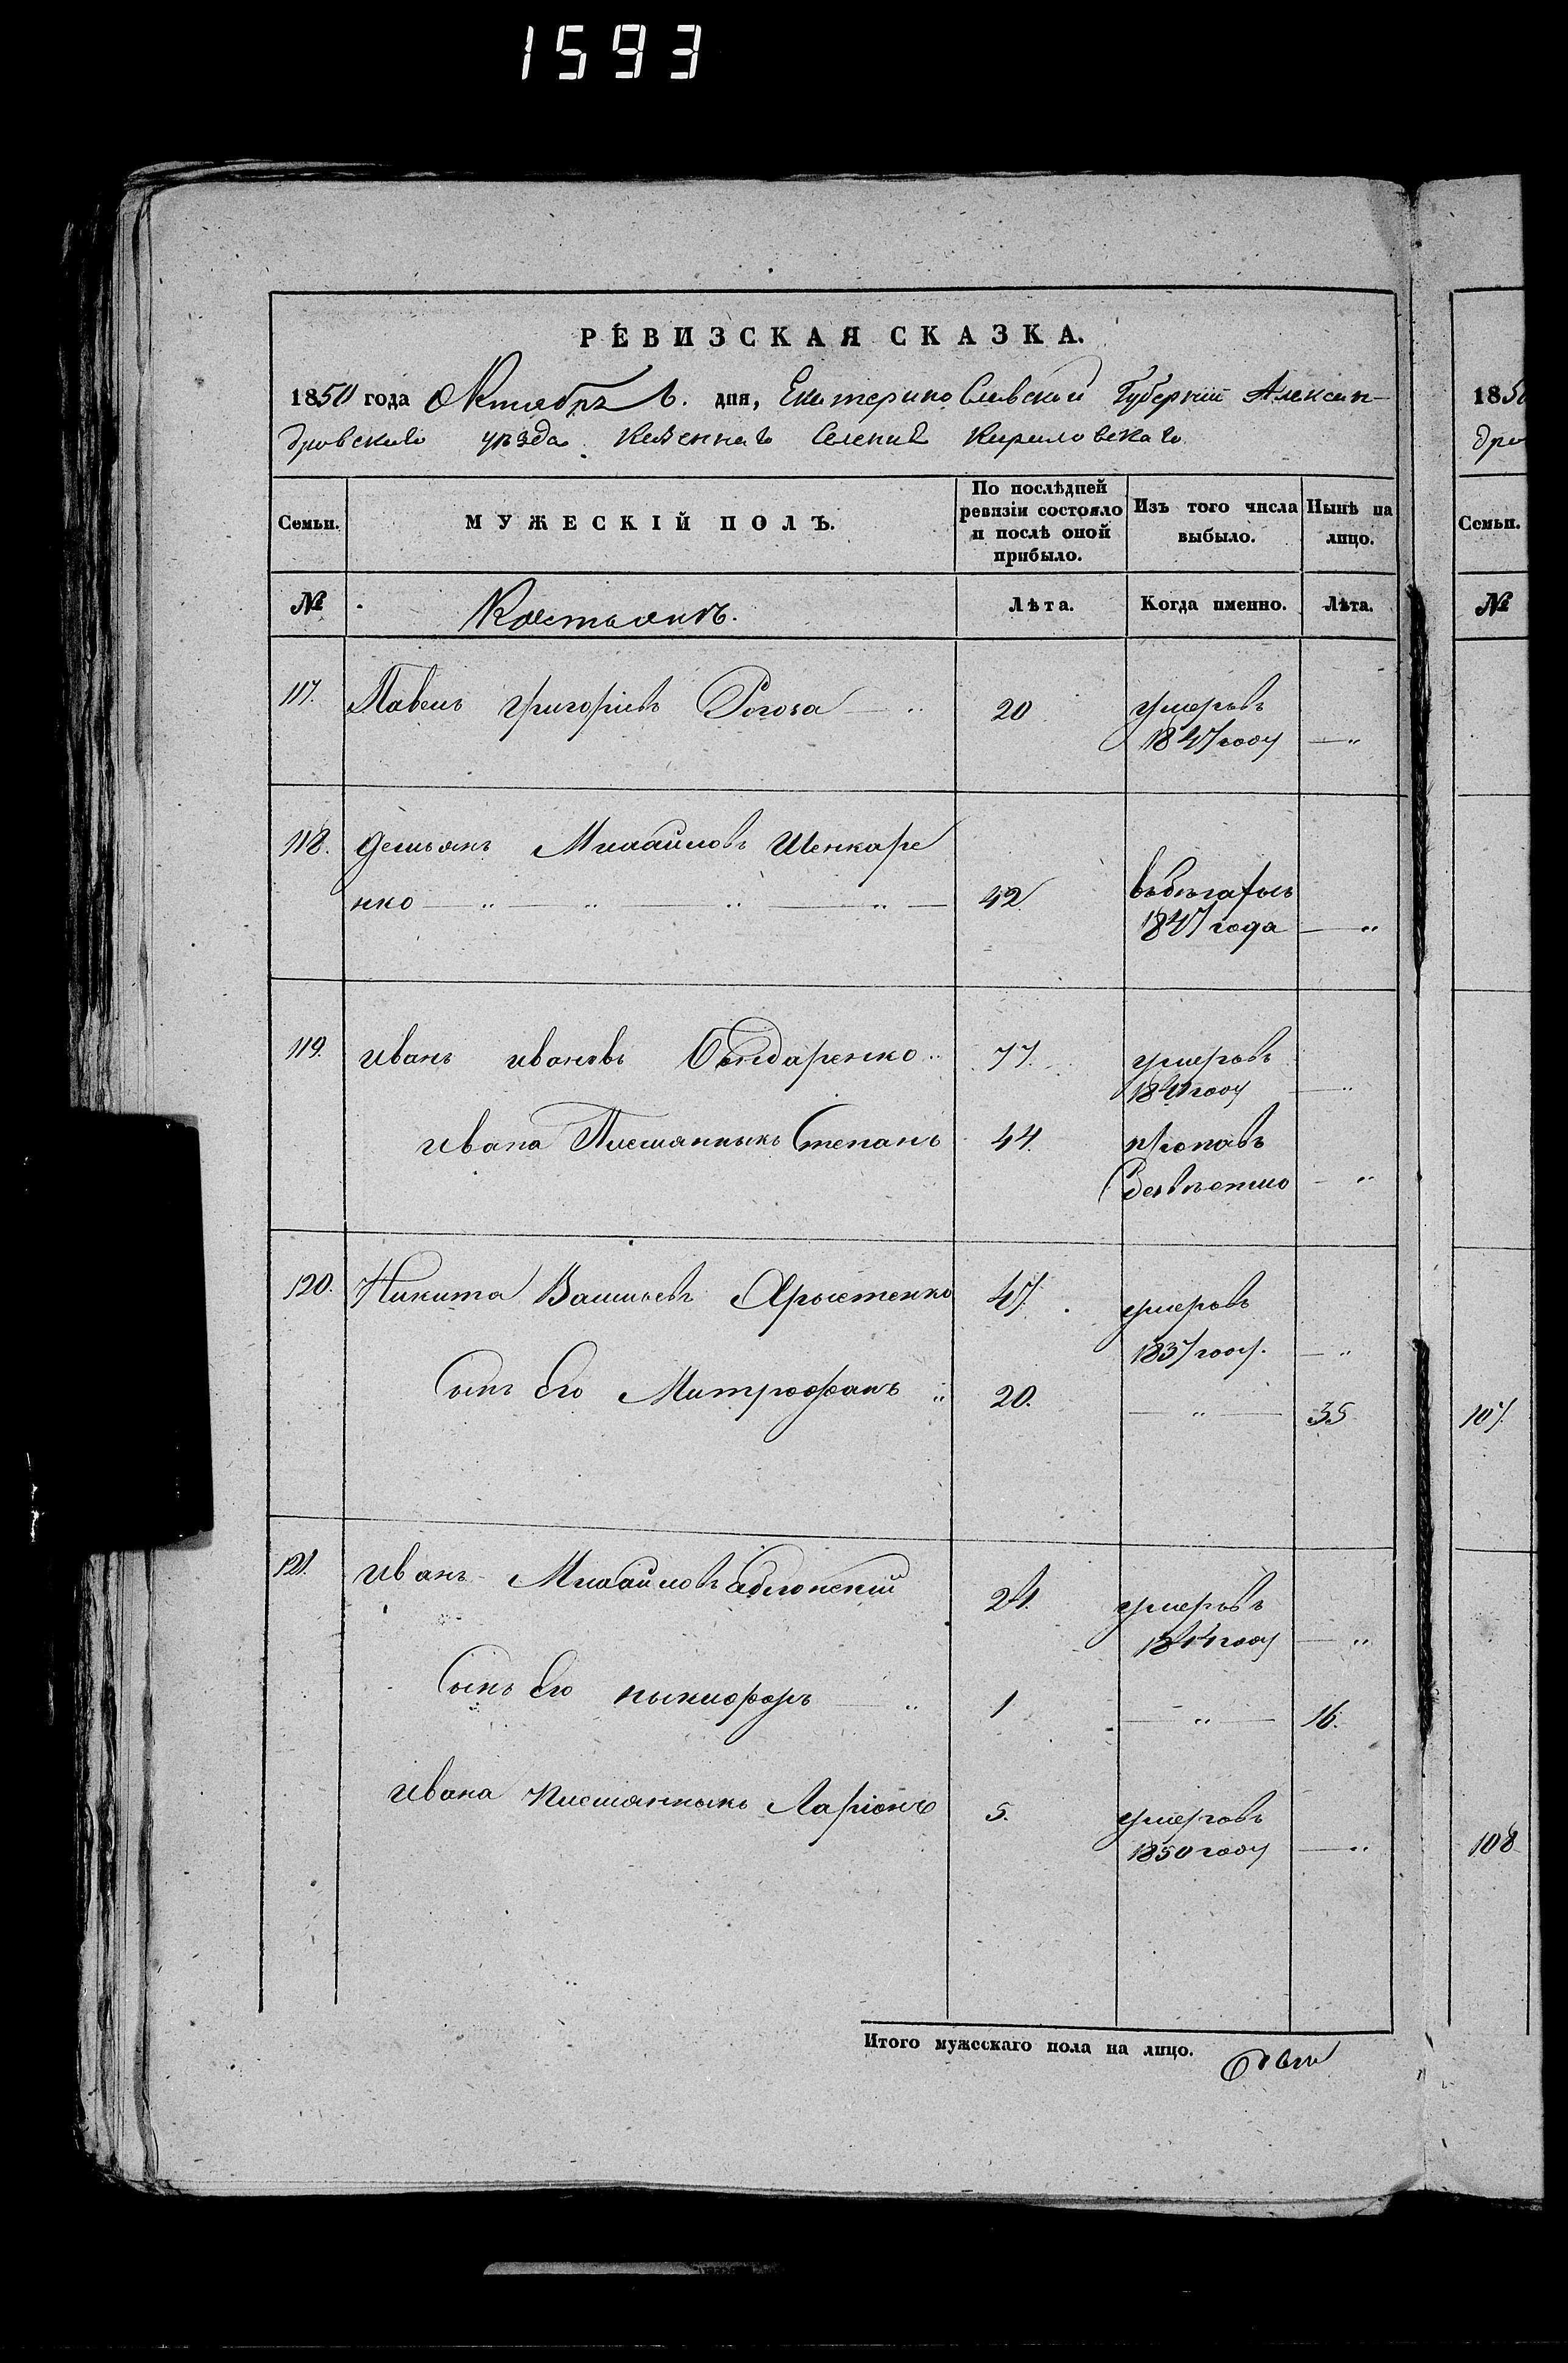 1593
РЕВИЗСКАЯ СКАЗКА.
1850 года Октябрь 6. дня, Екатеринославской Губерніи Алексан-
дровскаго уѣзда Казеннаго Селенія Кириловскаго
Семьи.
МУЖЕСКІЙ ПОЛЪ.
По послѣдней ревизіи состояло и послѣ оной прибыло.
Изъ того числа выбыло.
Нынѣ на лицо.
№
Лѣта.
Когда именно.
Лѣта.
117. Павелъ Григорієвъ Рогоза — „ 20 умеръвъ
1847 году — „
118. Демьянъ Михайловъ Шенкаре
нко — „ „ — „ — „ — 42
1847 года — „
119. Иванъ Ивановъ Бондаренко „ 77. умеръвъ
году — „
Ивана Племянныкъ Степанъ 44. пропавъ
Безвѣстно — „
120. Никита Васильевъ 47. умеръвъ
1837 году. — „
Сынъ Его Митрофанъ „ 20. — „ — 35
121. Иванъ Михайловъ 24. умеръвъ
1844 году — „
Сынъ Его Ныкифоръ — „ 1 — „ — 16.
Ивана Племянныкъ Ларіонъ 5. умеръвъ
1850 году — „
Итого мужескаго пола на лицо. Два
1850
дро
Семьи.
№
107.
108